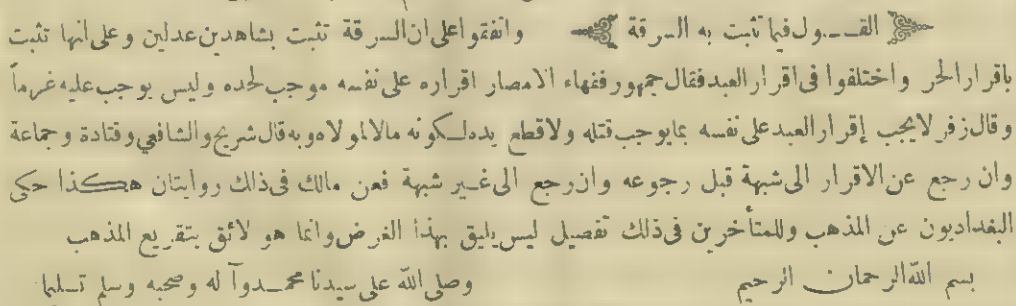 القول فيما تثبت به السرقة واتفقوا على ان السرقة تثبت بشاهدين عدلين وعلى انها تثبت
باقرار الحر واختلفوا فى اقرار العبد فقال جمهور فقهاء الامصار اقراره على نفسه موجب لحده وليس يوجب عليه غرماً
وقال زفر لا يجب إقرار العبد على نفسه بما يوجب قتله ولا قطع يده لكونه مالا لمولاه وبه قال شريح والشافعي وقتادة وجماعة
وان رجع عن الاقرار الى شبهة قبل رجوعه وان رجع الى غير شبهة فعن مالك فى ذلك روايتان هكذا حكى
البغداديون عن المذهب وللمتأخرين فى ذلك تفصيل ليس يليق بهذا الغرض وانما هو لائق بتفريع المذهب
بسم الله الرحمان الرحيم وصلى الله على سيدنا محمد وآله وصحبه وسلم تسليما